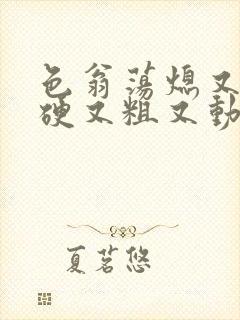 色翁荡熄又
硬又粗又動
夏茗悠